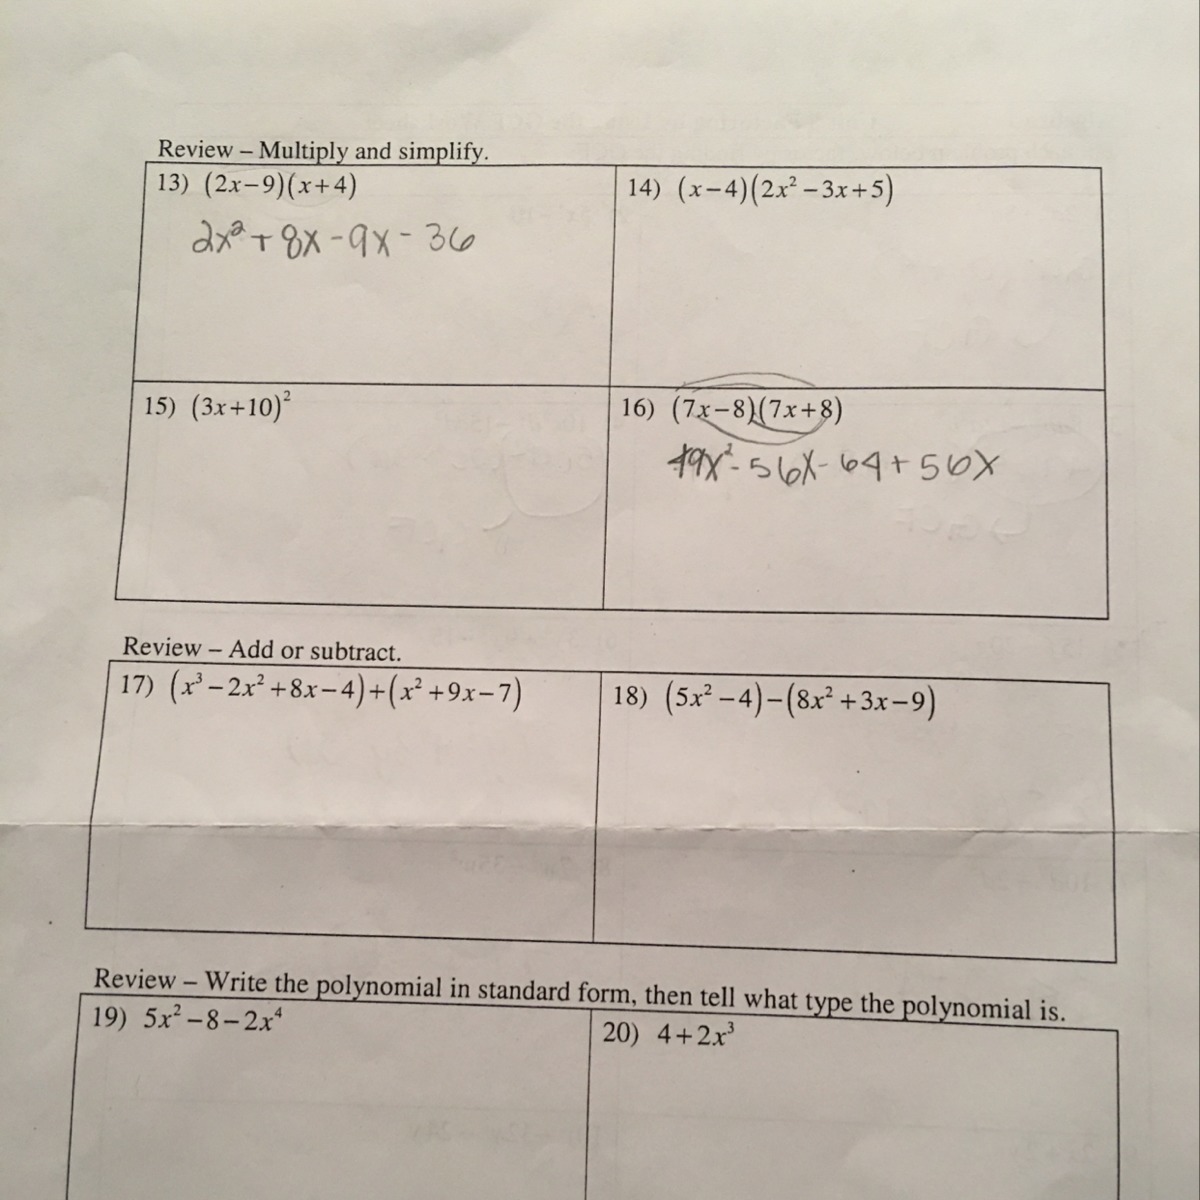 Review – Multiply and simplify.
13) (2x−9)(x+4)
2x² + 8x - 9x - 36
14) (x−4)(2x²−3x+5)
15) (3x+10)²
16) (7x−8)(7x+8)
49x² - 56x - 64 + 56x
Review – Add or subtract.
17) (x³−2x²+8x−4)+(x²+9x−7)
18) (5x²−4)−(8x²+3x−9)
Review – Write the polynomial in standard form, then tell what type the polynomial is.
19) 5x²−8−2x⁴
20) 4+2x³